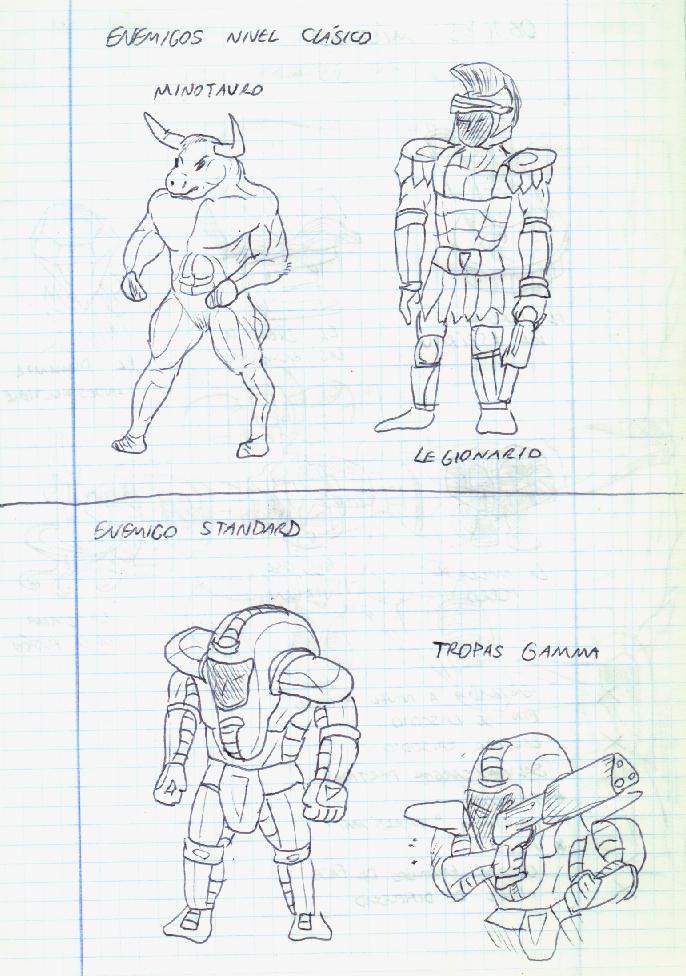 ENEMIGOS NIVEL CLÁSICO
MINOTAURO
LEGIONARIO
ENEMIGO STANDARD
TROPAS GAMMA